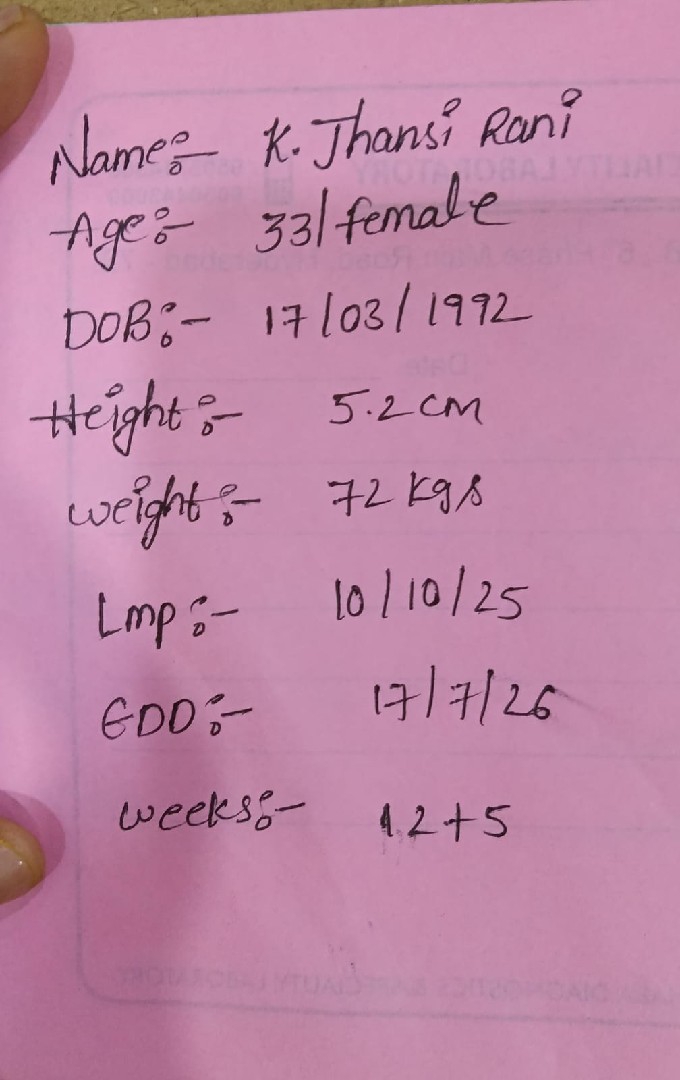 Name:- K. Jhansi Rani
Age:- 33/female
DOB:- 17/03/1992
Height:- 5.2 cm
weight:- 72 kgs
Lmp:- 10/10/25
EDD:- 17/7/26
weeks:- 12+5